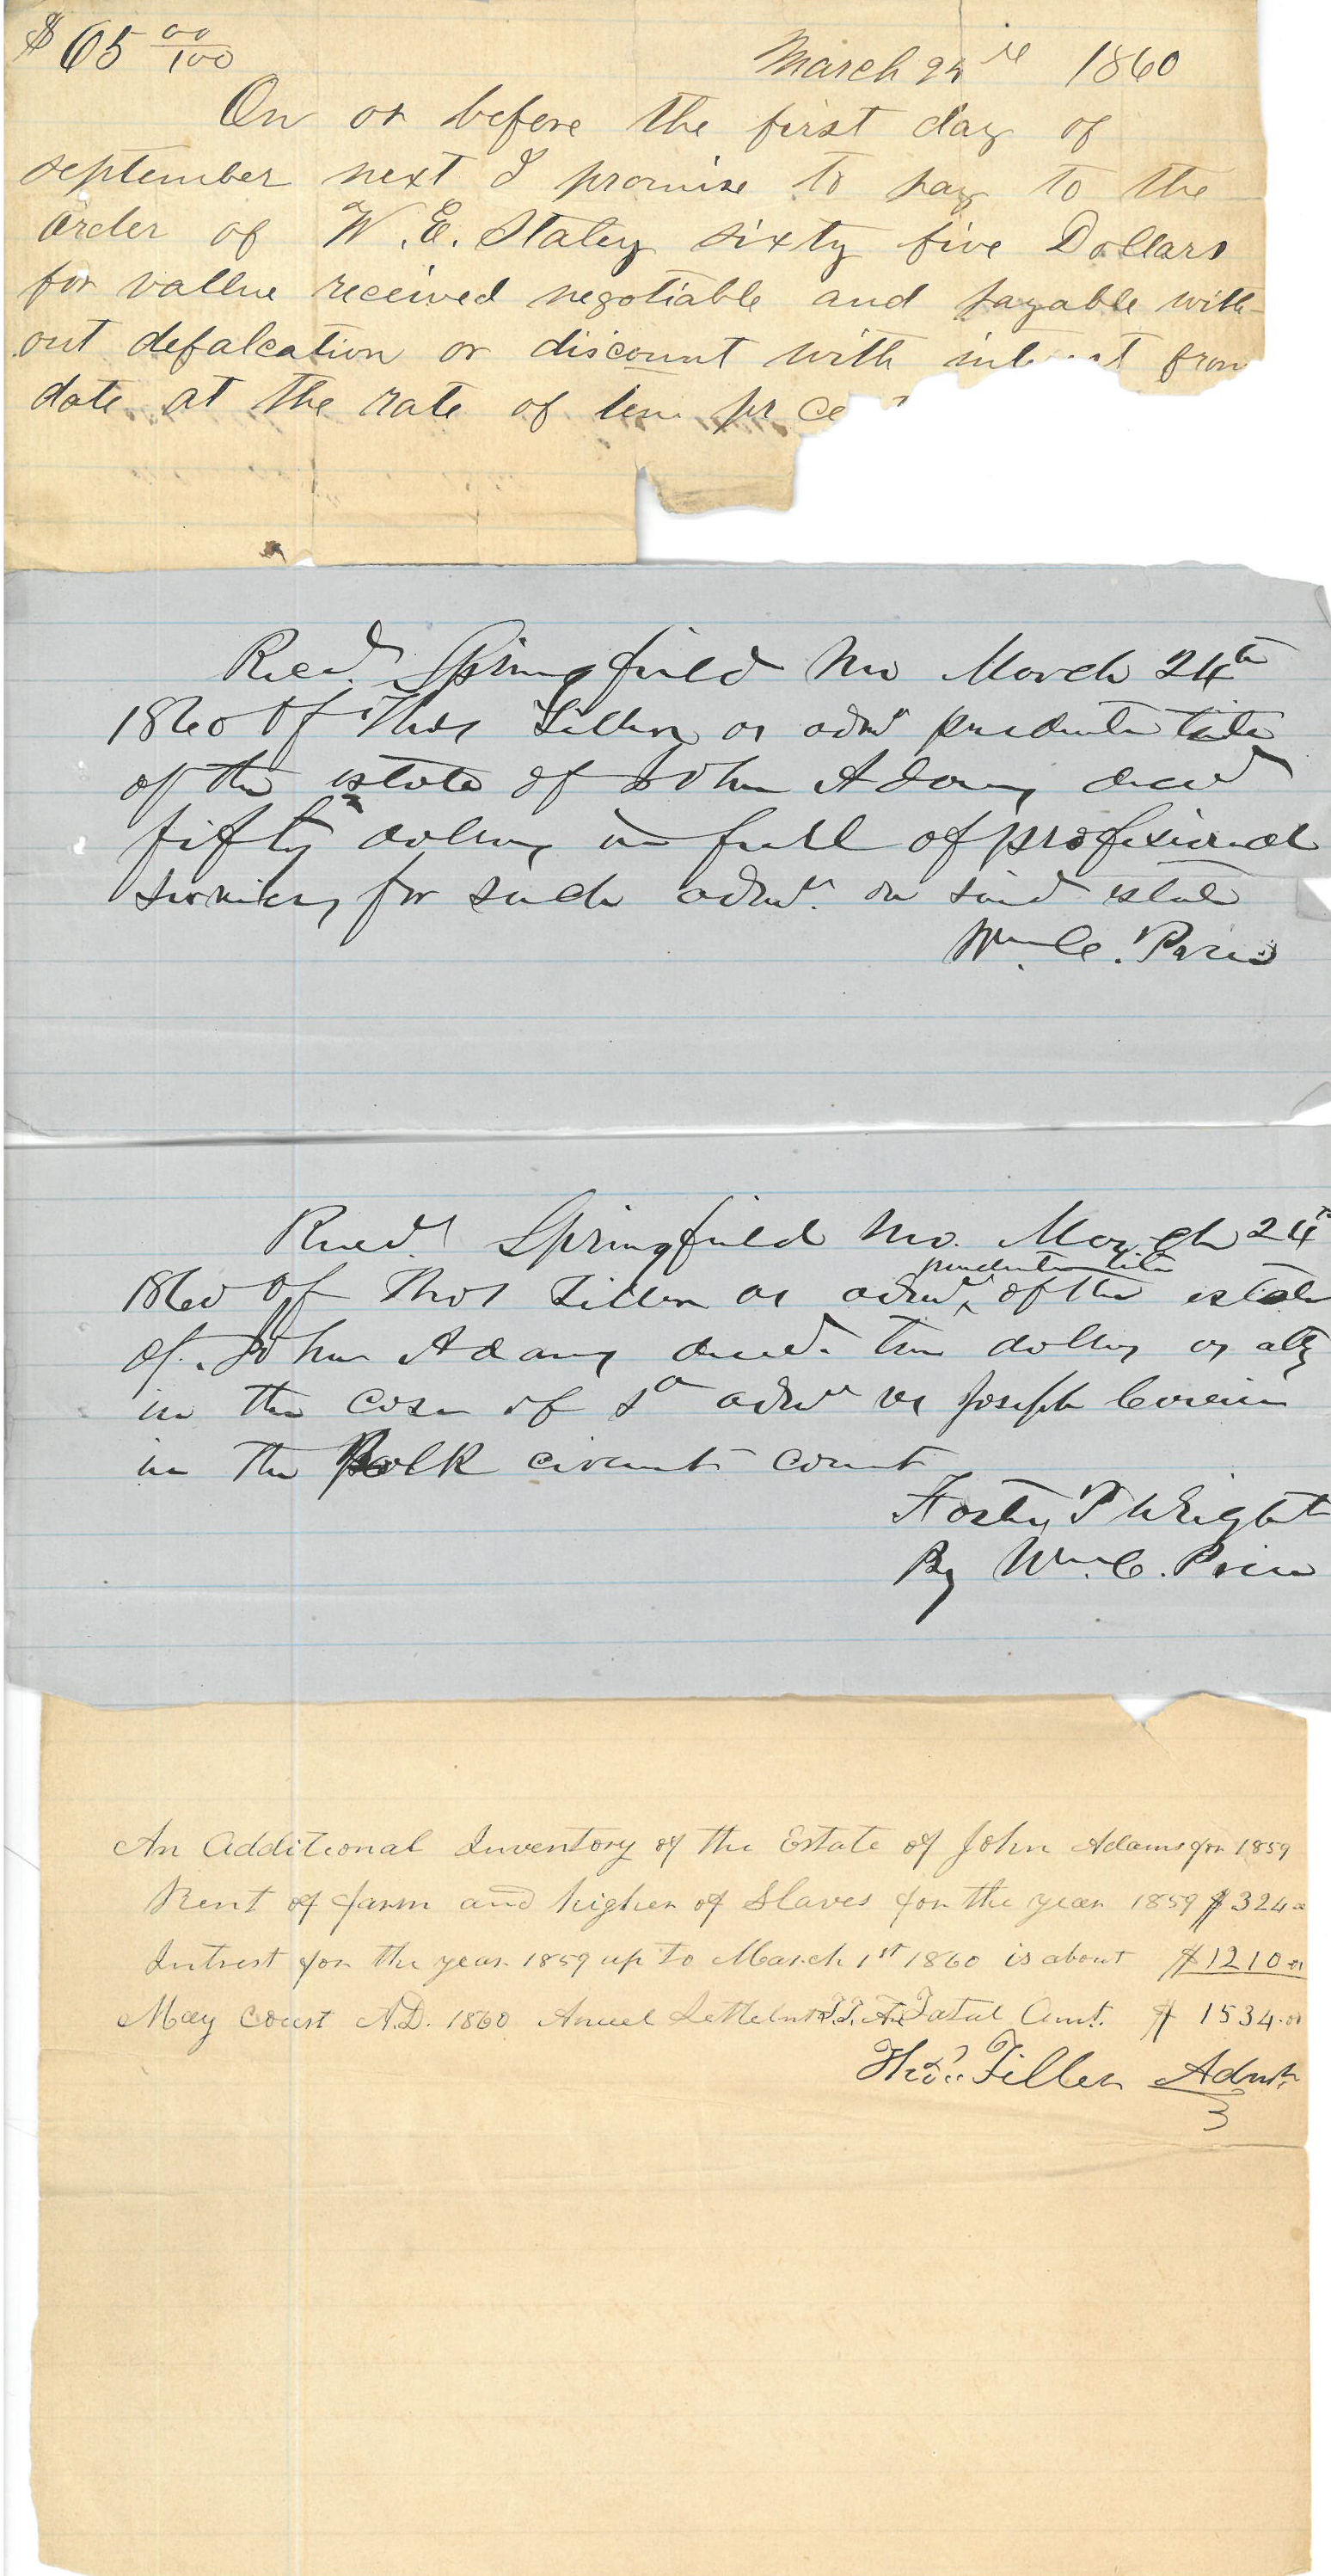 $65 00/100 March 24th 1860
On or before the first day of
september next I promise to pay to the
order of W. E. Staley sixty five Dollars
for vallue received negotiable and payable with-
out defalcation or discount with interest from
date at the rate of ten pr ce
Recd. Springfield Mo March 24th
1860 of Thos Tiller as admr pendente lite
of the estate of John Adams decd
fifty dollars in full of professional
services for such admr. on said estate
Wm. C. Price
Recd. Springfield Mo. March 24th
pendente lite
1860 of Thos Tiller as admr ^ of the estate
of John Adams decd. ten dollars as atty
in the case of sd admr vs Joseph
in the Polk circuit court
Foster P Wright
By Wm. C. Price
An Additional Inventory of the Estate of John Adams for 1859
Rent of farm and higher of Slaves for the year 1859 $324 00
Intrest for the year 1859 up to March 1st 1860 is about $1210 00
May Court A.D. 1860 Anuel Settelmt T.T. Ad Total Amt. $1534.00
Thos. Tiller Admr